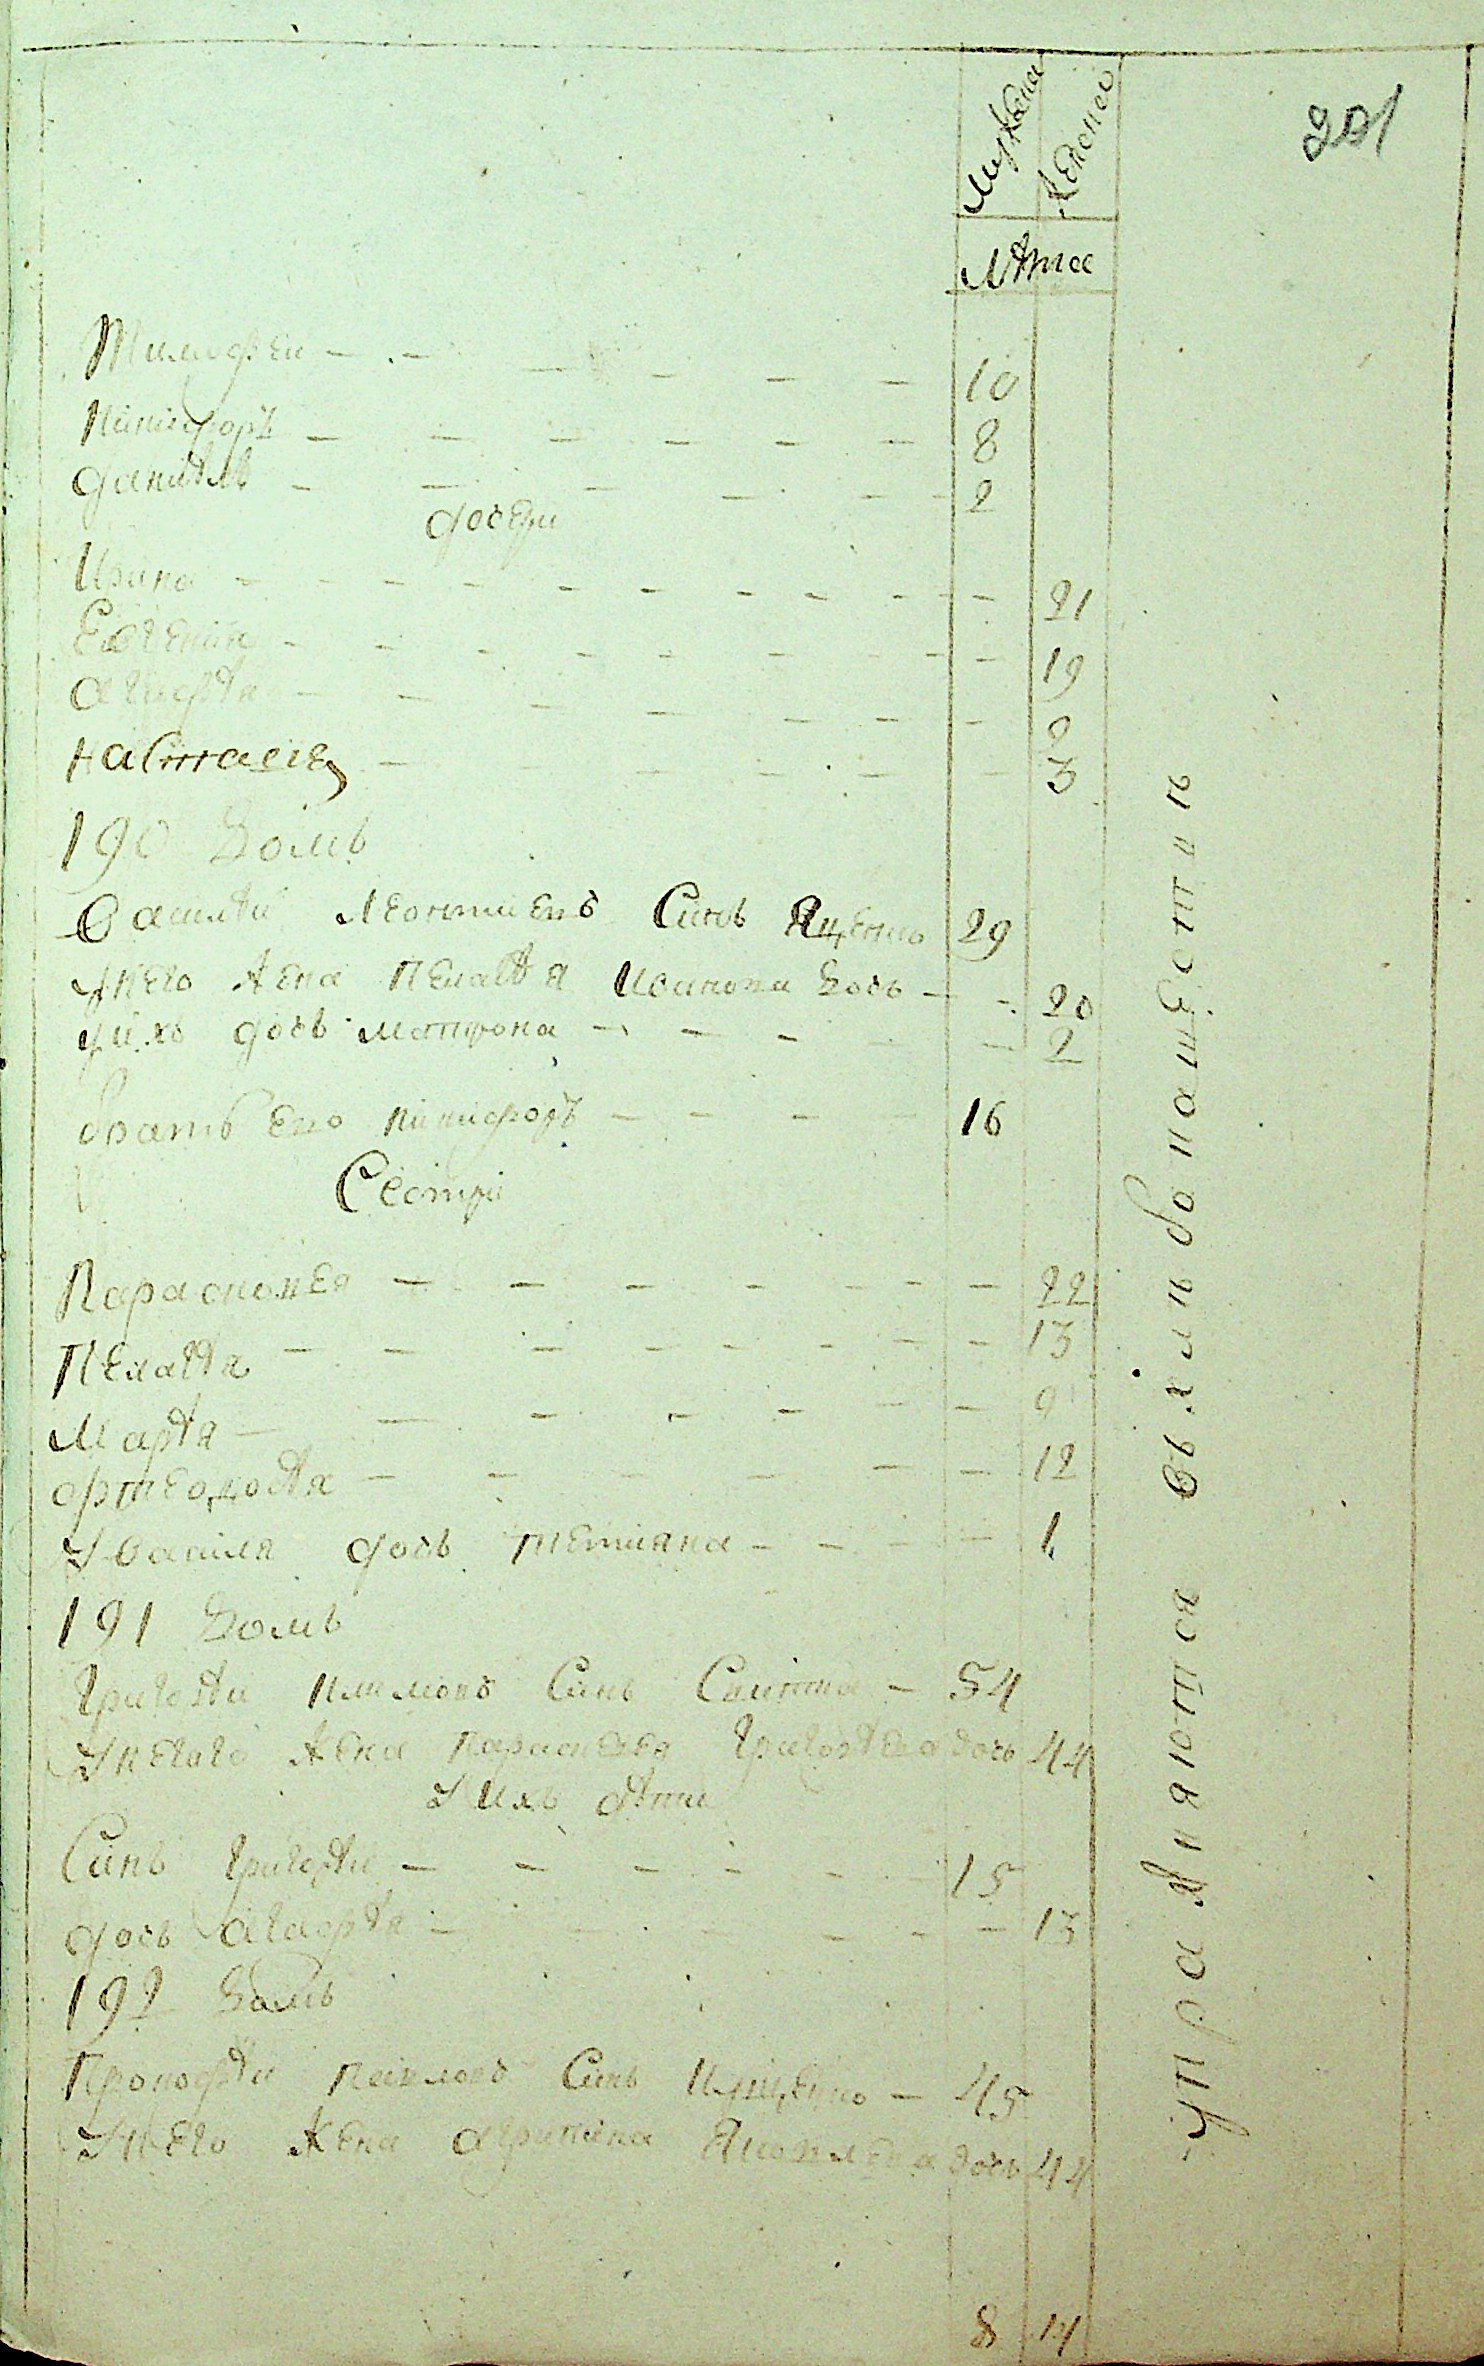 201
мужеска женска
лѣта
Тимофеи 10
Никифоръ 8
данiилъ 2
дочери
Ирина 21
Евгения 19
агафѣя 2
настасия 3
190 домъ
василѣи леонтиевъ Синъ Ященко 29
у него жена пелагѣя Иванова дочь 20
у ихъ дочь матрона 2
братъ его никифоръ 16
Сестри
Парасковея 22
пелагѣя 13
марѣя 9
фтеодосѣя 12
у василя дочь тетияна 1
191 домъ
григорѣи климовъ Синъ 54
у него жена параскевея григорѣева дочь 44
у ихъ дѣти
Синъ григорѣи 15
дочь агафѣя 13
192 домъ
прокофѣи павловъ Синъ 45
у него жена акрипина Яковлева дочь 44
8 14
упражняются въ хлѣбопашестпѣ